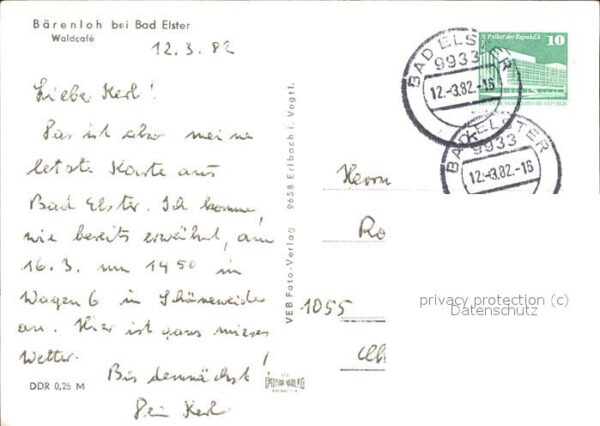 Bärenloh bei Bad Elster
Waldcafé
12.3.82
Lieber Kerl!
Das ist also meine
letzte Karte aus
Bad Elster. Ich komme,
wie bereits erwähnt, am
16.3. um 14 50 in
Wagen 6 in Schöneweide
an. Hier ist ganz mieses
Wetter.
Bis demnächst!
Dein Kerl
DDR 0,25 M
VEB Foto-Verlag 9658 Erlbach i. Vogtl.
BAD ELSTER
9933
12.-3.82.-16
Palast der Republik 10
BAD ELSTER
9933
12.-3.82.-16
Herrn
Ro
1055
privacy protection (c)
Datenschutz